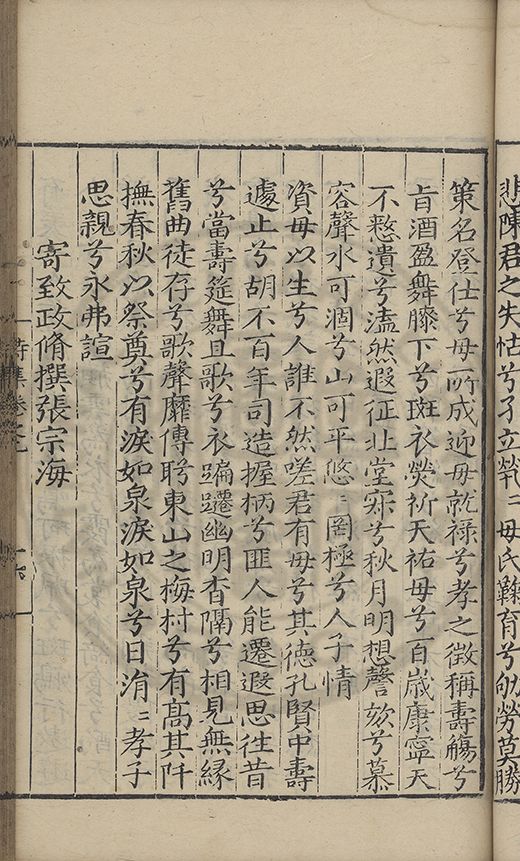 悲陳君之失怙兮孑立煢〻母氏鞠育兮劬勞莫勝
策名登仕兮母所成迎母就祿兮孝之徵稱壽觴兮
旨酒盈舞膝下兮斑衣熒祈天祐母兮百歲康寧天
不憗遺兮溘然遐征北堂寂兮秋月明想謦欬兮慕
容聲水可涸兮山可平悠〻罔極兮人子情
資母以生兮人誰不然嗟君有母兮其德孔賢中壽
遽止兮胡不百年司造握柄兮匪人能遷遐思往昔
兮當壽筵舞且歌兮衣蹁躚幽明杳隔兮相見無緣
舊曲徒存兮歌聲靡傳盻東山之梅村兮有髙其阡
撫春秋以祭奠兮有淚如泉淚如泉兮日涓〻孝子
思親兮永弗諠
寄致政脩撰張宗海
詩集卷之九